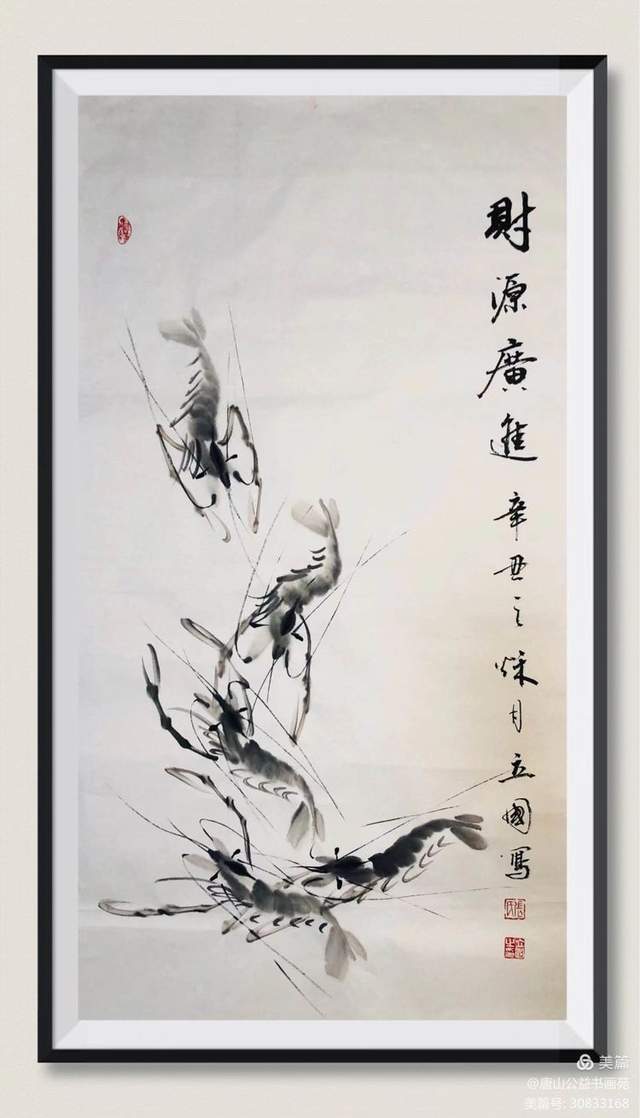 財源廣進 辛丑之烁月立國寫
美篇
@唐山公益书画苑
美篇号: 30833168